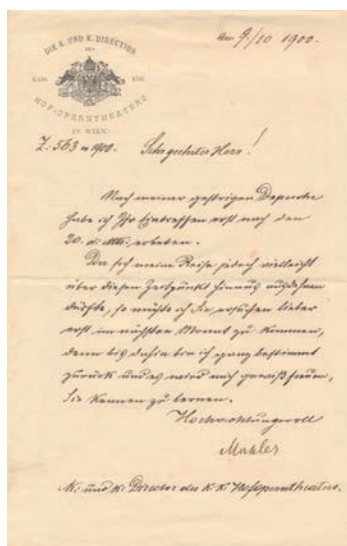 DIE K. UND K. DIRECTION
DES
KAIS. KÖN.
HOF-OPERNTHEATERS
IN WIEN.
am 9./10 1900.
Z. 563 a 1900.
Sehr geehrter Herr!
Nach meiner gestrigen Depesche
habe ich Ihr Eintreffen erst nach den
20. d. Mts. erbeten.
Da sich meine Reise jedoch vielleicht
über diesen Zeitpunkt hinaus ausdehnen
dürfte, so möchte ich Sie ersuchen lieber
erst im nächsten Monat zu kommen,
denn bis dahin bin ich ganz bestimmt
zurück und es wird mich gewiß freuen,
Sie kennen zu lernen.
Hochachtungsvoll
Mahler
K. und K. Director des K. K. Hofoperntheaters.